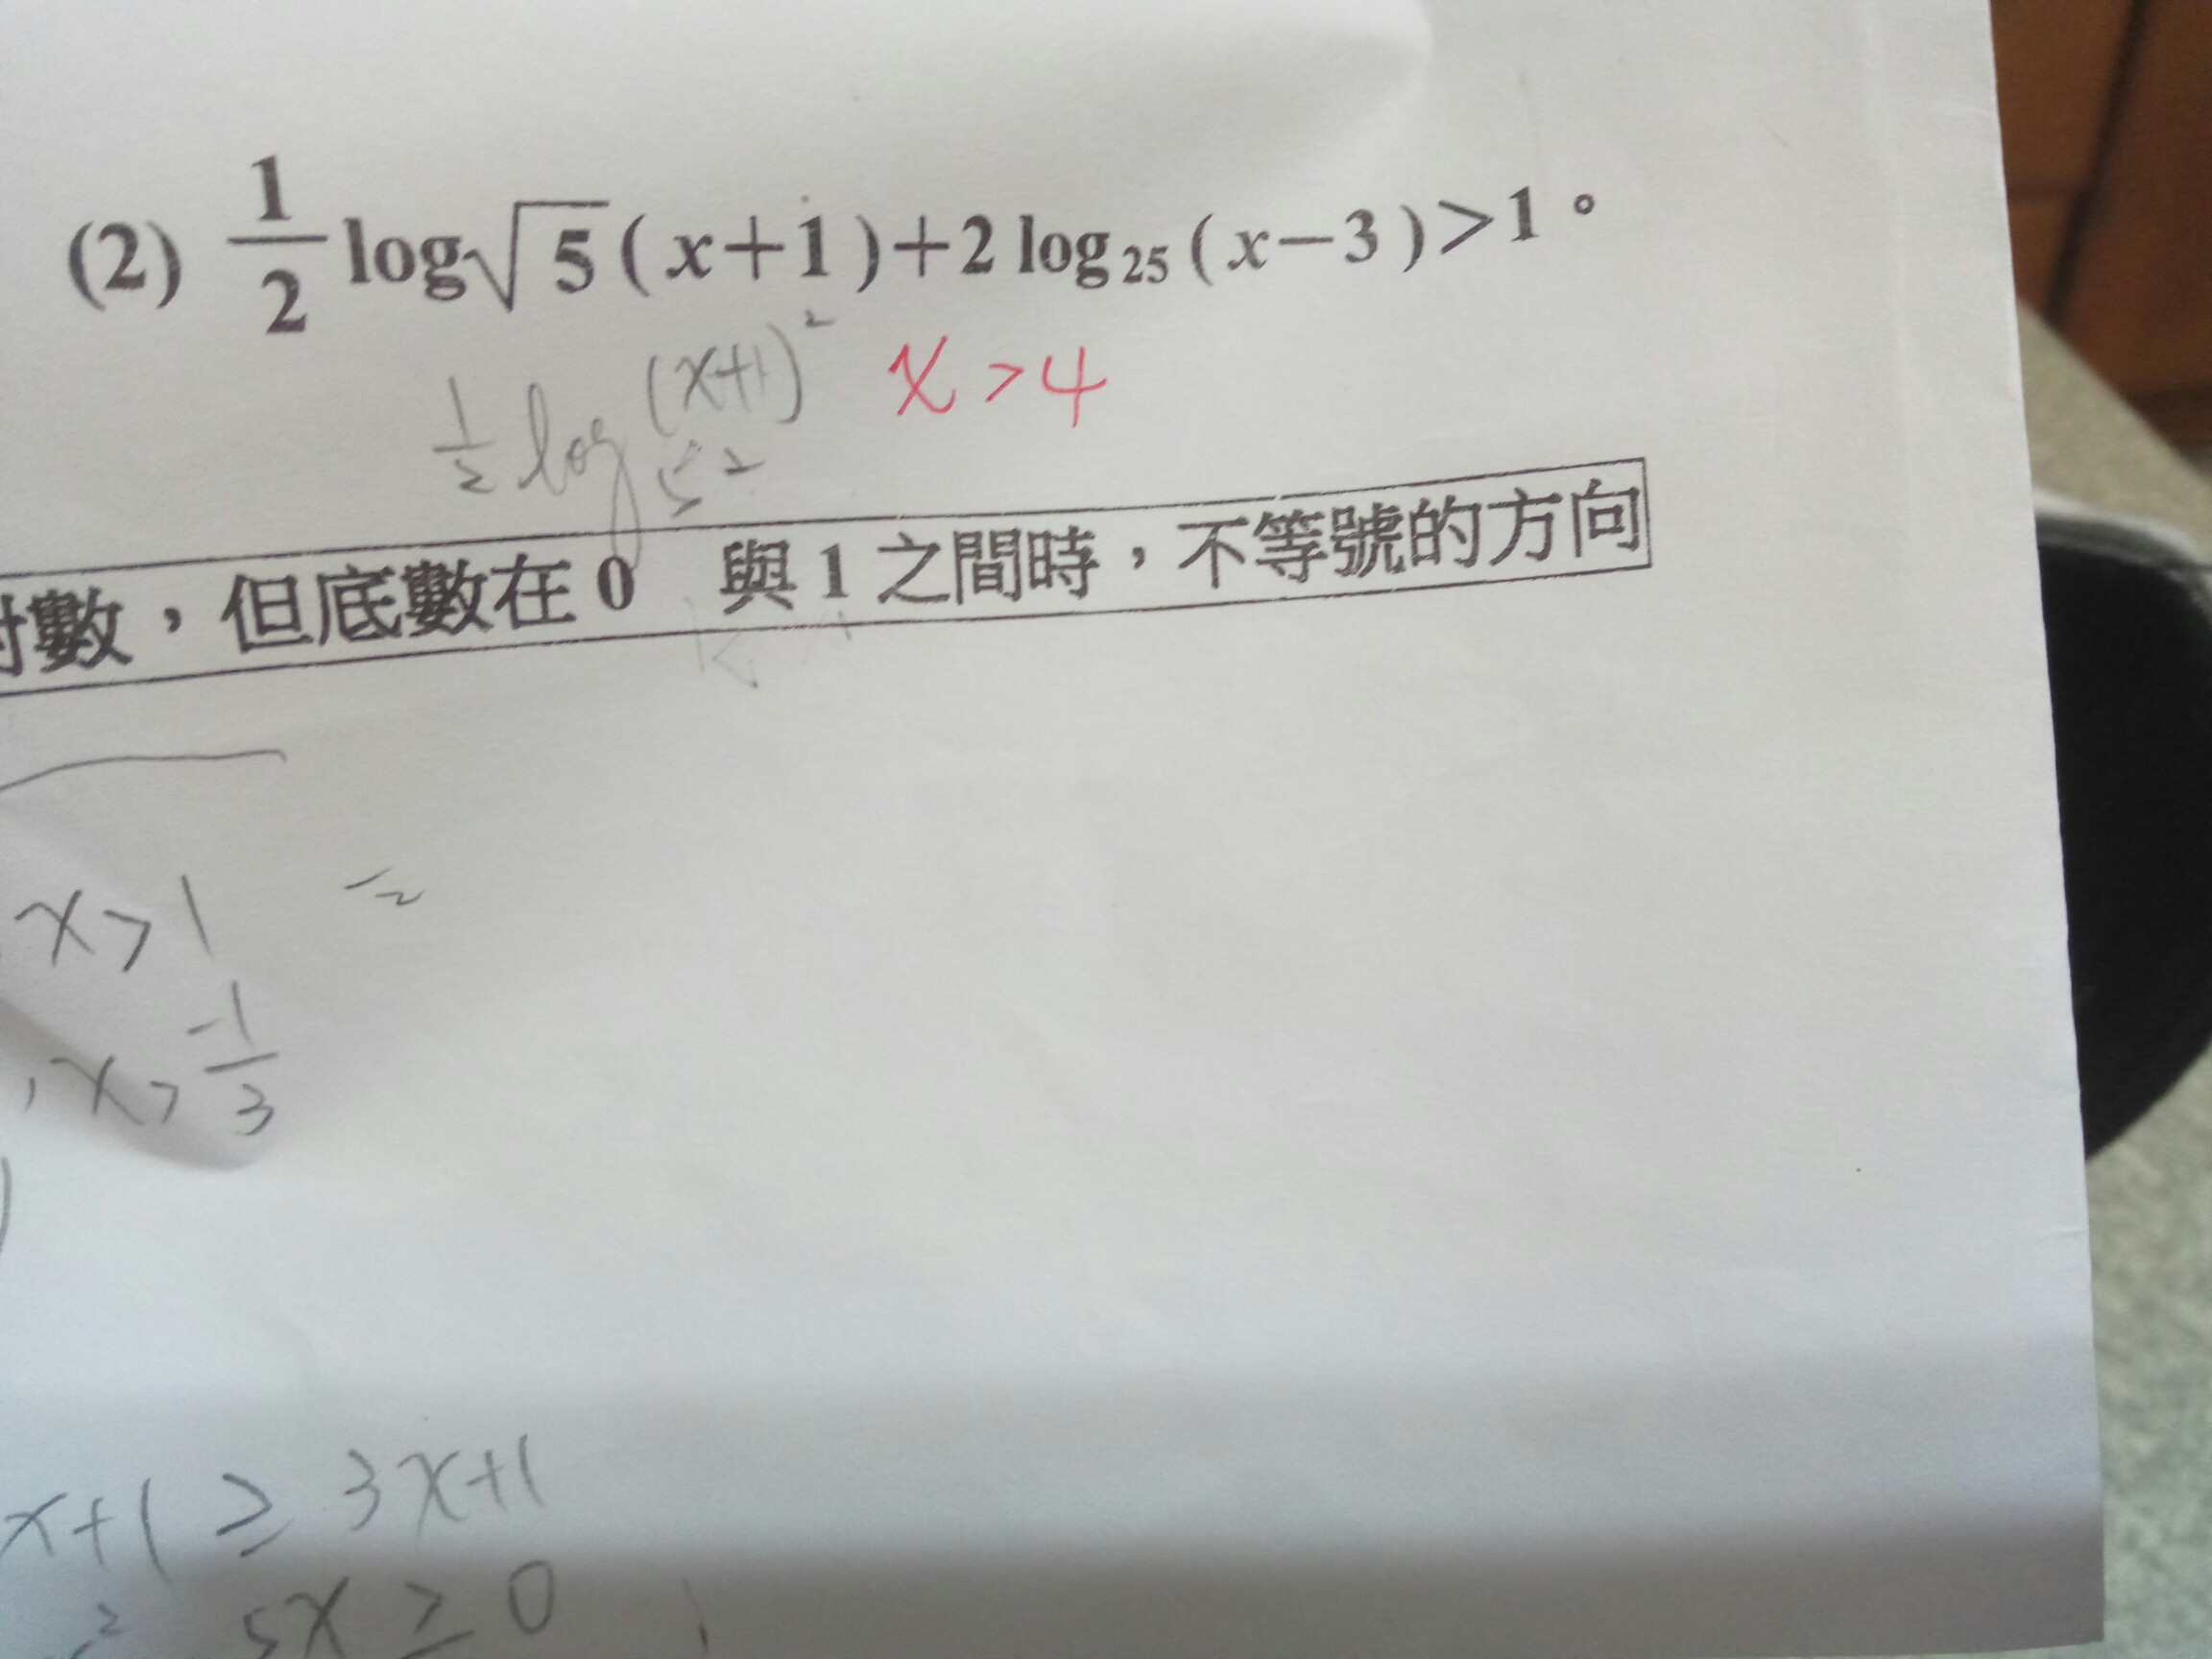 (2) 1/2 log√5(x+1)+2 log₂₅(x−3)>1。
1/2 log 5² (x+1)² x>4
對數，但底數在0 與1之間時，不等號的方向
x>1
, x> -1/3
x+1 ≥ 3x+1
5x ≥ 0